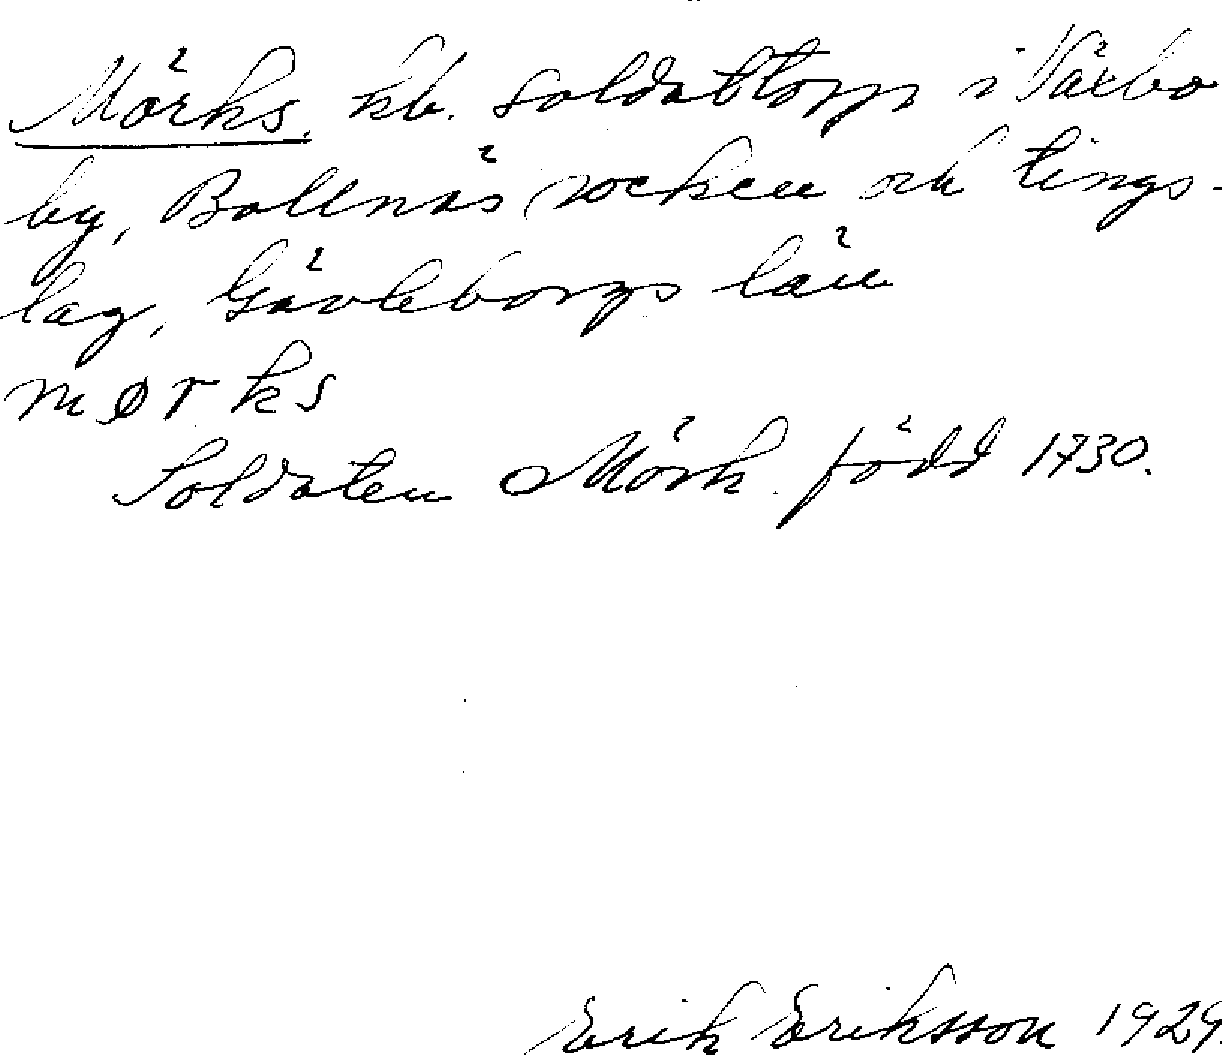 Mörks, kb. soldattorp i Växbo
by, Bollnäs socken och tings-
lag, Gävleborgs län
mørks
Soldaten Mörk. född 1730.
Erik Eriksson 1929